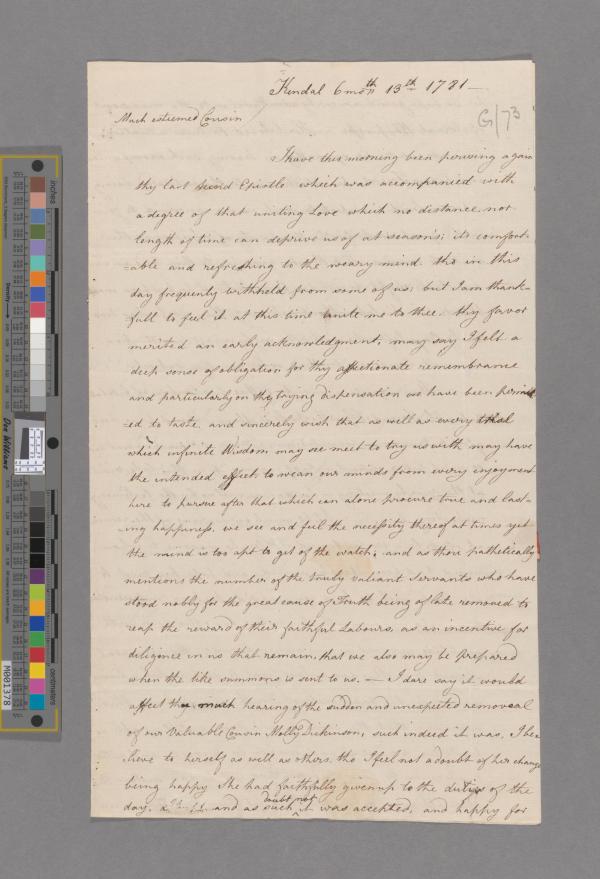 Kendal 6 moth 13th 1781
G/73
Much esteemed Cousin
I have this morning been perusing again
thy last second Epistle which was accompanied with
a degree of that uniting Love which no distance, nor
length of time can deprive us of at seasons; its comfort-
=able and refreshing to the weary mind, tho in this
day frequently withheld from some of us; but I am thank-
full to feel it at this time unite me to thee. thy favor
merited an early acknowledgment, may say I felt a
deep sense of obligation for thy affectionate remembrance
and particularly on the trying dispensation we have been permitt
=ed to taste, and sincerely wish that as well as every trial
which infinite Wisdom may see meet to try us with may have
the intended effect to wean our minds from every enjoyment
here to pursue after that which can alone procure true and last-
-ing happiness, we see and feel the necessity thereof at times yet
the mind is too apt to get of the watch; and as thou pathetically
mentions the number of the truly valiant Servants who have
stood nobly for the great cause of Truth being of late removed to
reap the reward of their faithful Labours, as an incentive for
diligence in us that remain, that we also may be prepared
when the like summons is sent to us. — I dare say it would
affect thee much hearing of the sudden and unexpected removeal
of our Valuable Cousin Molly Dickinson, such indeed it was, I be=
lieve to herself as well as others, tho I feel not a doubt of her change
being happy She had faithfully given up to the duties of the
day, and as such doubt not it was accepted, and happy for
inches
centimeters
Density
Don Williams
M001378